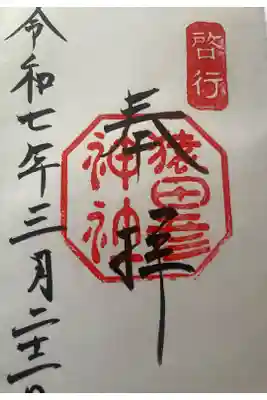 啓行
奉拝
猿田彦
神社
令和七年三月二十一日